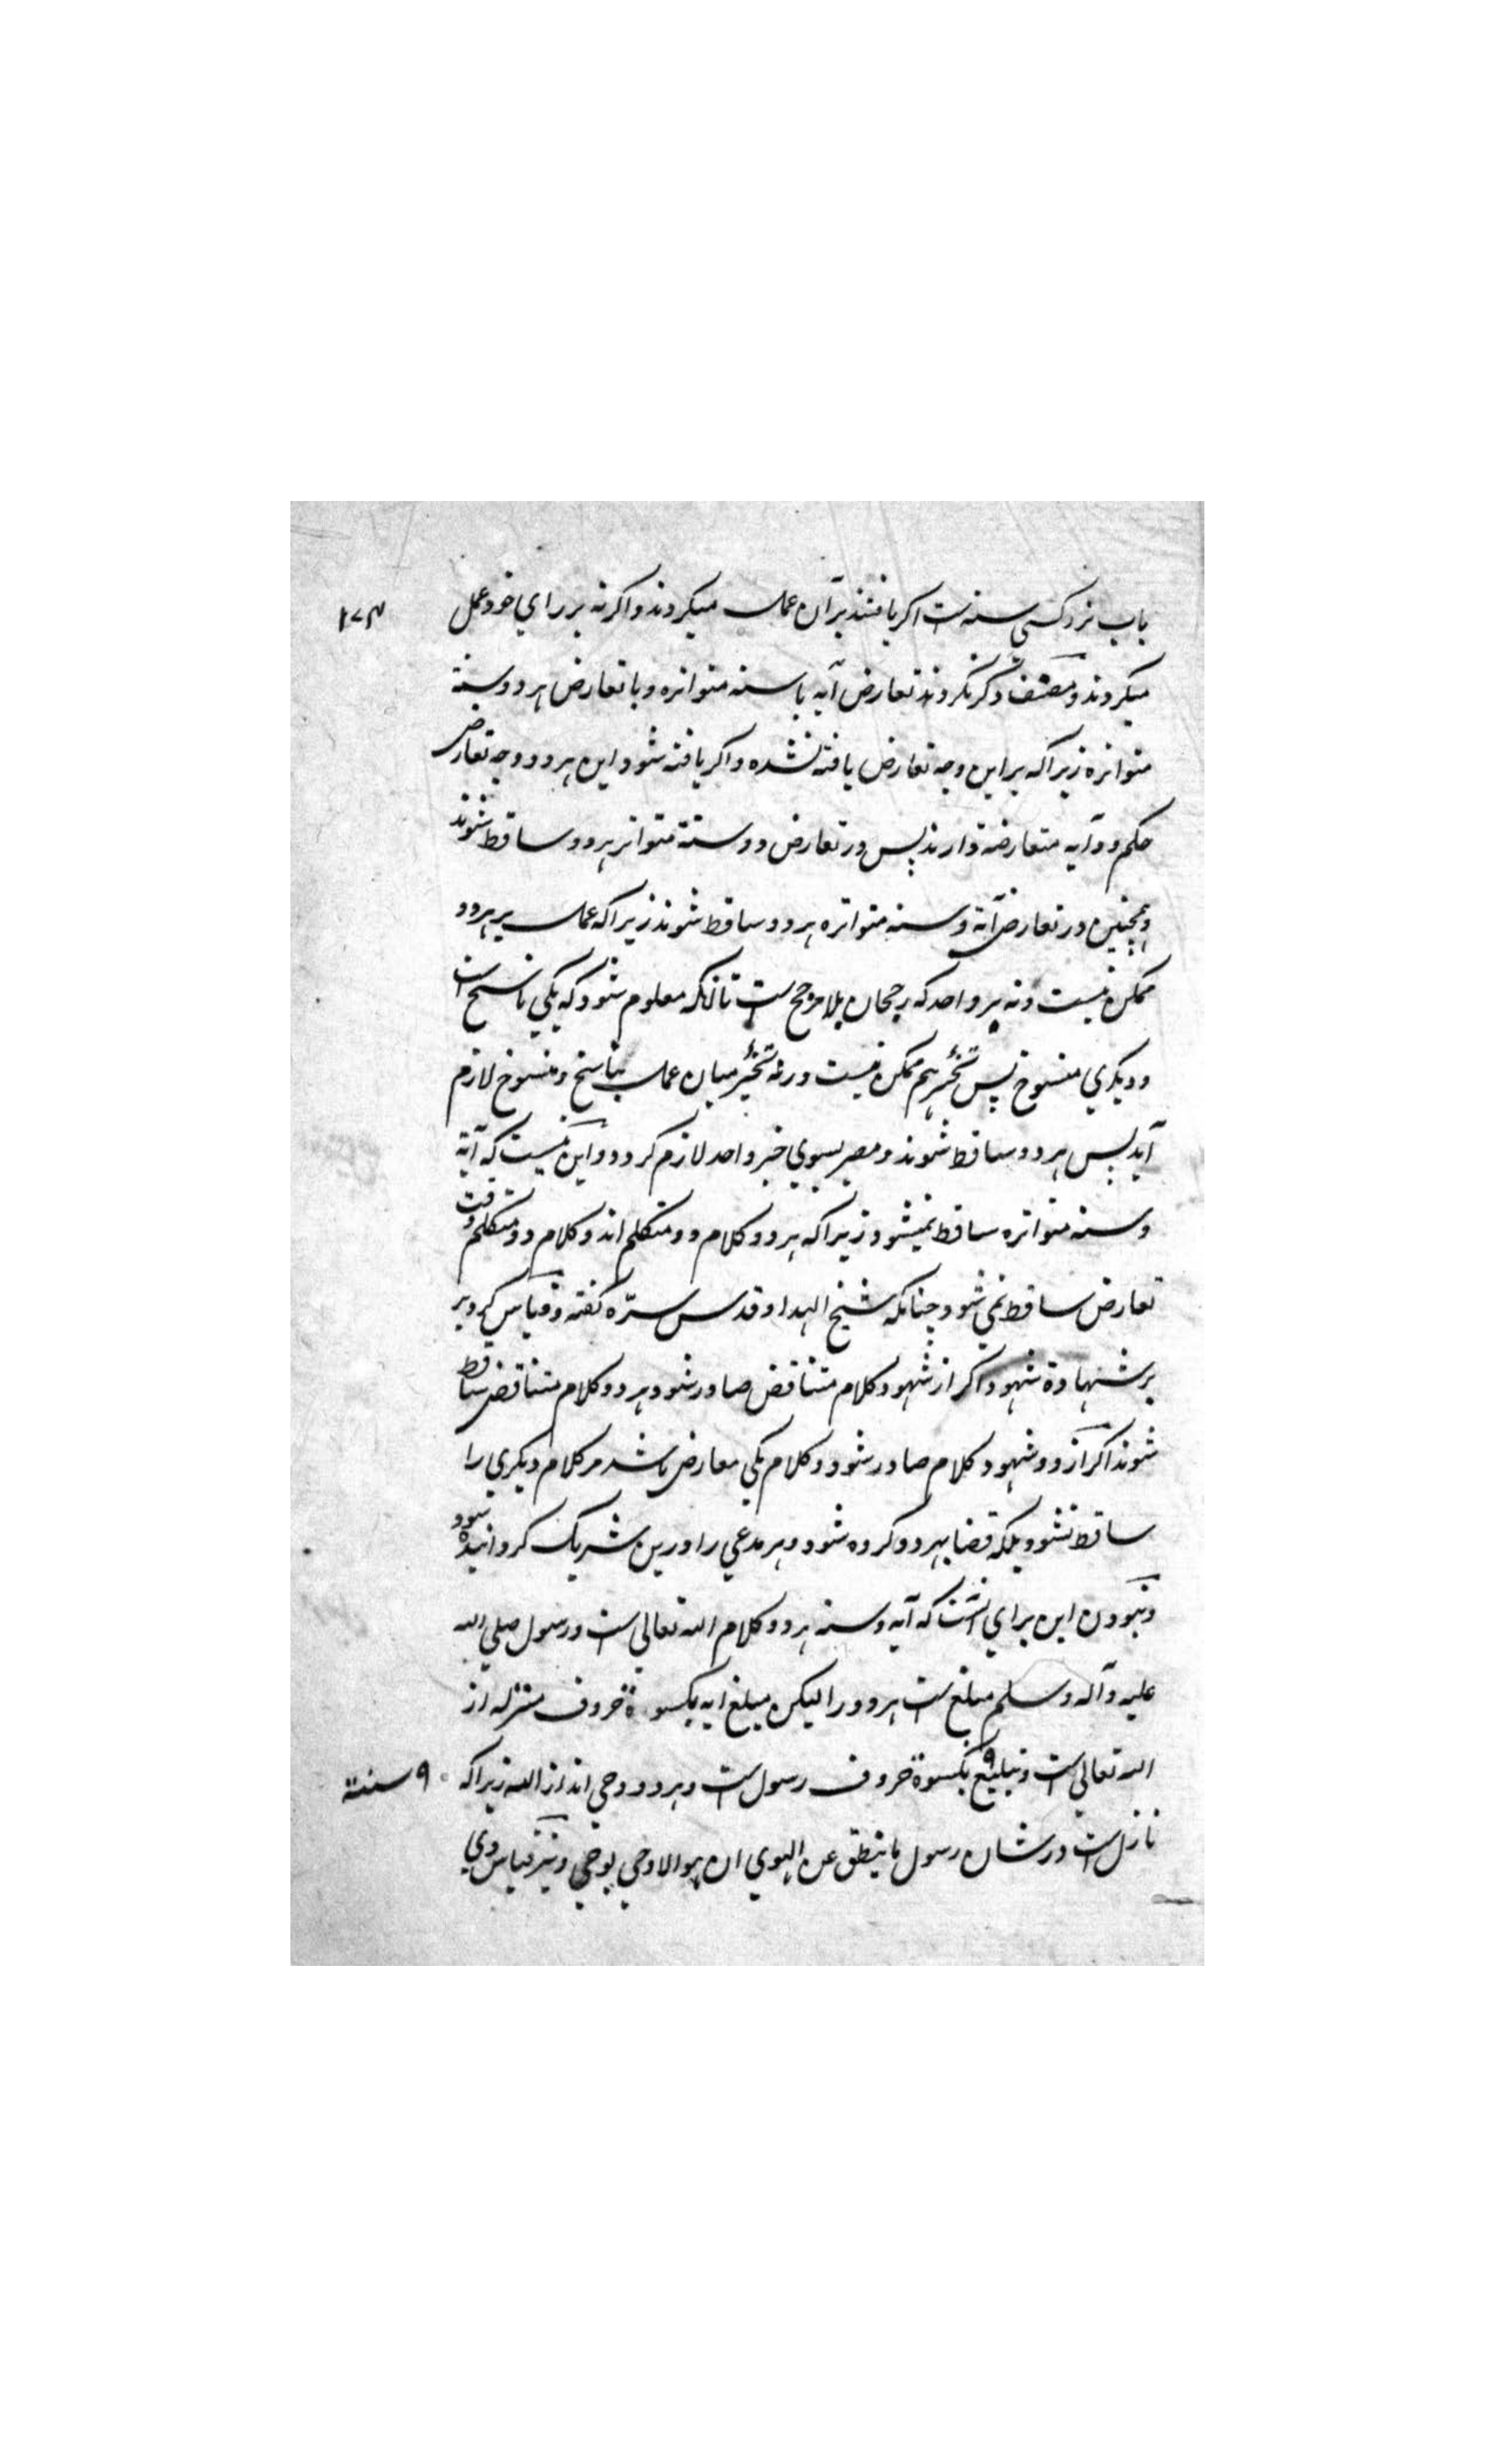 ۱۷۴
باب نزد کسی سنه است اکر یافتند بر آن عمل میکردند و اکر نه بر راي خود عمل
میکردند و مصنف ذکر نکردند تعارض آیه با سنه متواتره و با تعارض هر دو سنة
متواتره زیرا که بر این وجه تعارض یافته نشده و اکر یافته شود این هر دو وجه تعارض
حکم دو آیه متعارضه دارند پس در تعارض دو سنة متواتر هر دو ساقط شوند
و همچنین در تعارض آیة و سنه متواتره هر دو ساقط شوند زیرا که عمل بر هر دو
ممکن نیست و نه بر واحد که رجحان بلا مرجح است تا آنکه معلوم شود که یکي ناسخ است
و دیکري منسوخ پس تخیر هم ممکن نیست ورنه تخییر میان عمل بناسخ و منسوخ لازم
آید پس هر دو ساقط شوند و مصیر بسوي خبر واحد لازم کردد و این نیست که آیة
و سنه متواتره ساقط نمیشود زیرا که هر دو کلام دو متکلم اند و کلام دو متکلم وقت
تعارض ساقط نمي شود چنانکه شیخ الهداد قدس سرّه کفته و قیاس کرد بر
بر شهادة شهود اکر از شهود کلام متناقض صادر شود هر دو کلام متناقض ساقط
شوند اکر از دو شهود کلام صادر شود و کلام یکي معارض باشد مر کلام دیکري را
ساقط نشود بلکه قضا بهر دو کرده شود و هر مدعي را درین شریک کردانیده شود
و نبودن این براي آنست که آیه و سنه هر دو کلام الله تعالي است و رسول صلي الله
علیه و آله و سلم مبلغ است هر دو را لیکن مبلغ ایه بکسوة حروف منزله از
الله تعالي است و تبلیغ ۹ بکسوة حروف رسول است و هر دو وحي اند از الله زیرا که
۹ سنة
نازل است در شان رسول ما ینطق عن الهوي ان هو الا وحي یوحي و نیز قیاس وي